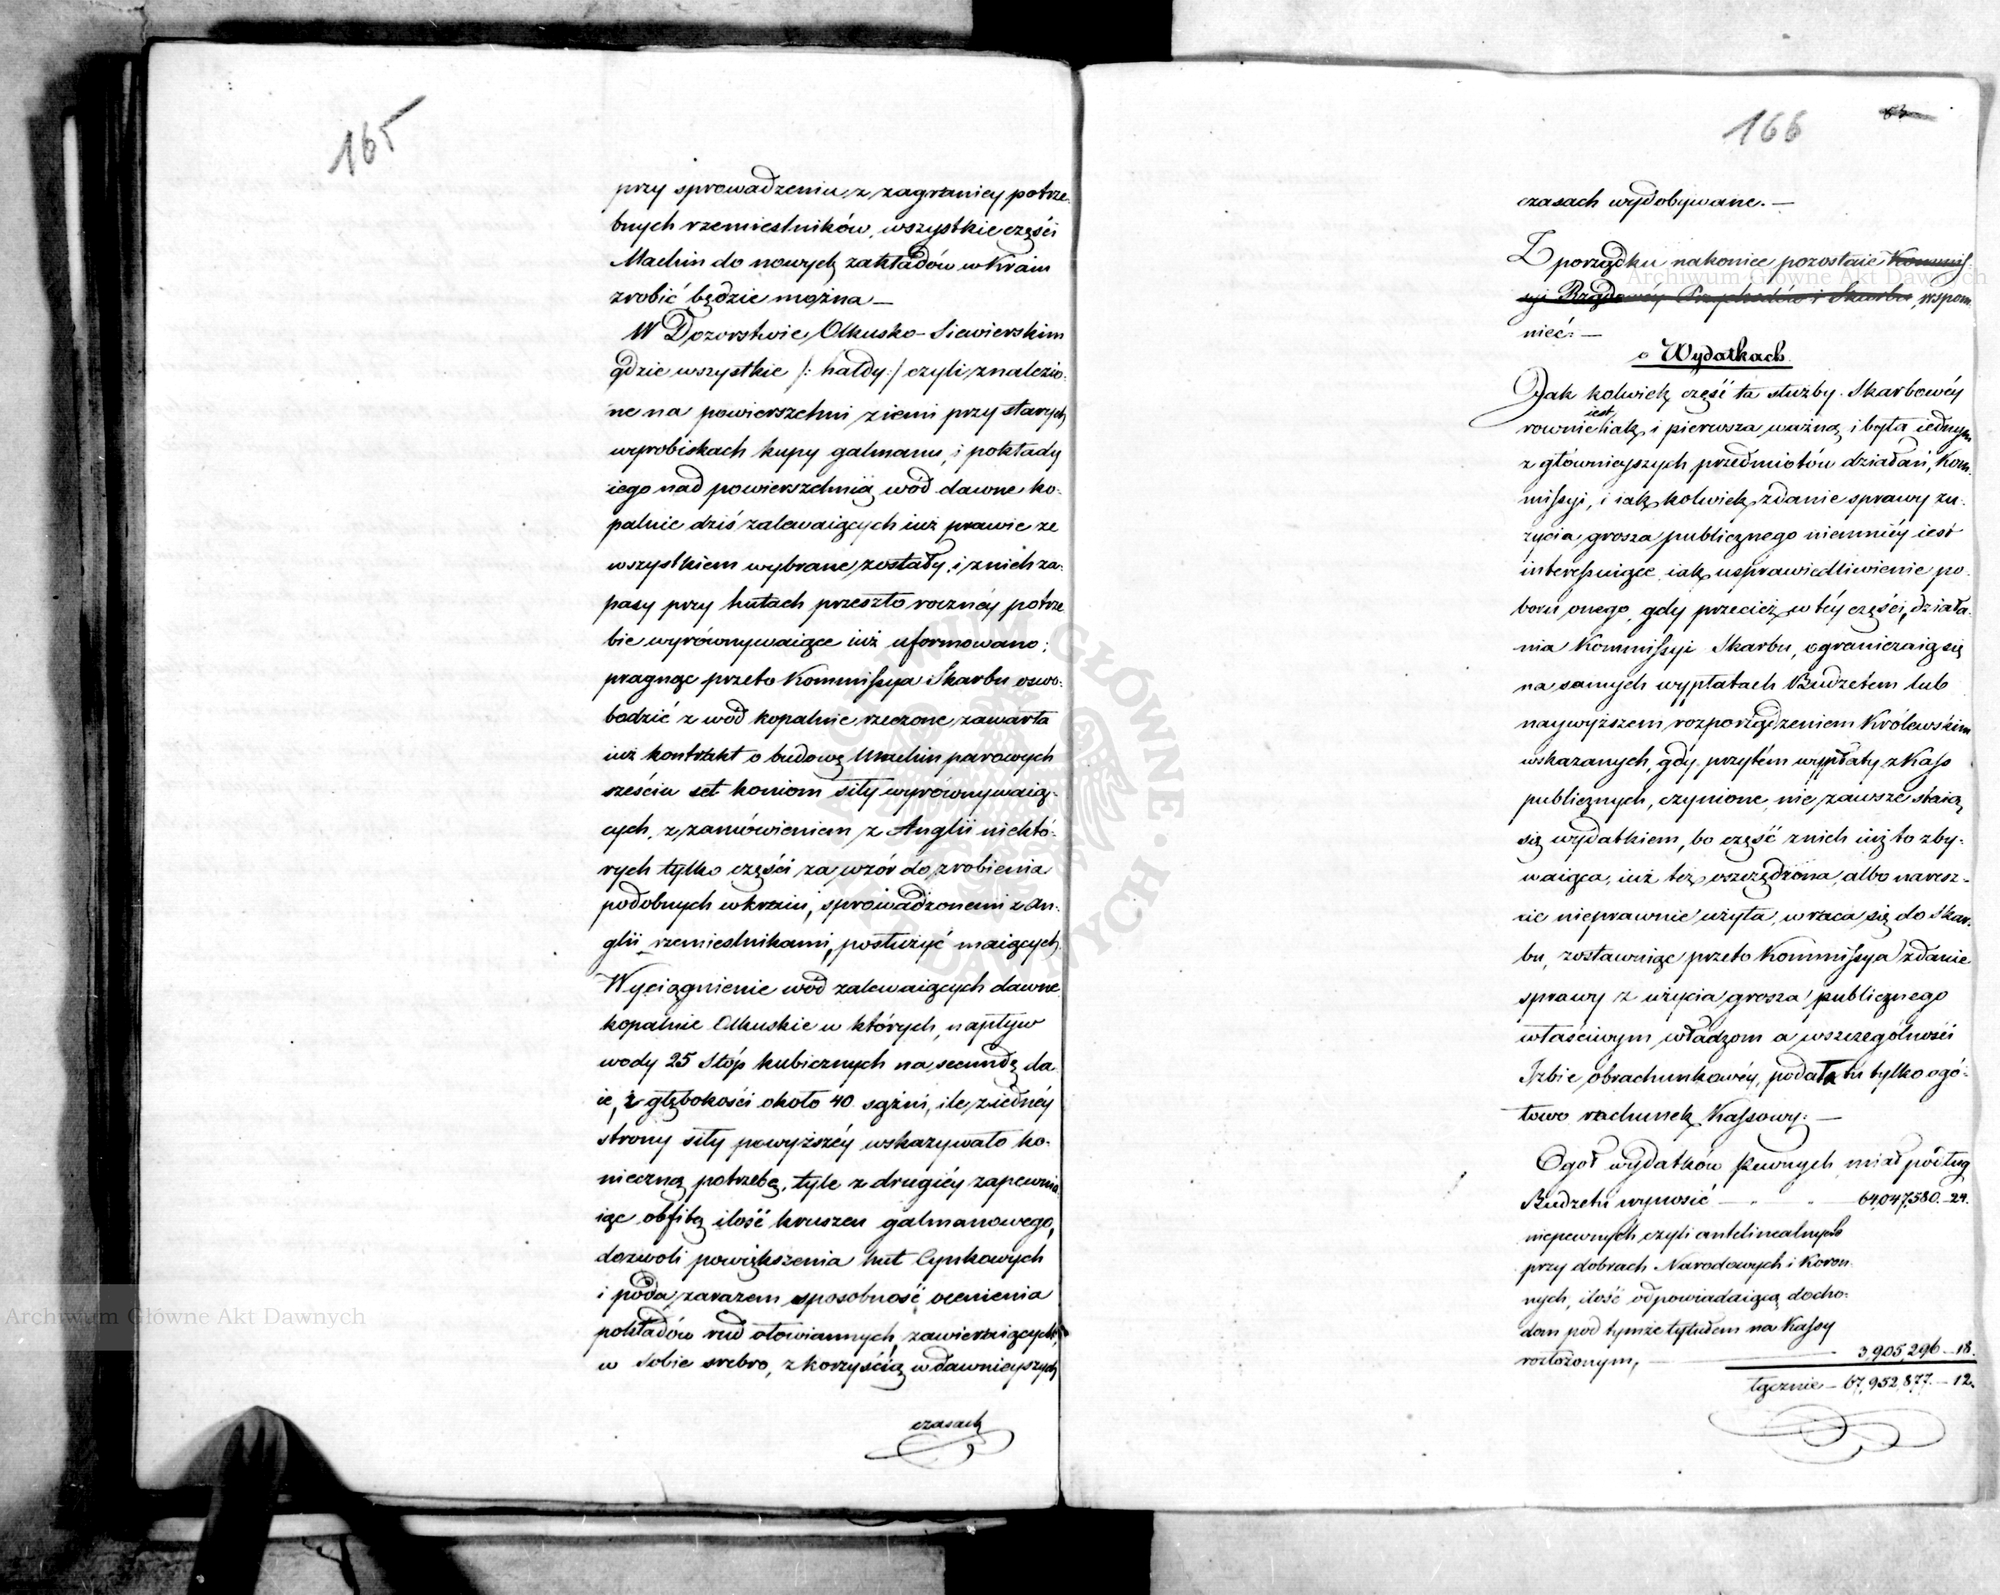 165
przy sprowadzeniu z zagranicy potrze-
bnych rzemieslników, wszystkie części
Machin do nowych zakładów w Kraiu
zrobić będzie można —
W Dozorstwie Olkusko-Siewierskim
gdzie wszystkie /: hałdy :/ czyli znalezio-
ne na powierzchni ziemi przy starych
wyrobiskach kupy galmanu, i pokłady
iego nad powierzchnią wód dawne ko-
palnie dziś zalewaiących iuż prawie ze
wszystkiem wybrane zostały, i z nich za-
pasy przy hutach przeszło roczney potrze
bie wyrównywaiące iuż uformowano;
pragnąc przeto Kommissya Skarbu oswo-
bodzić z wód kopalnie rzeczone zawarła
iuż kontrakt o budowę Machin parowych
sześciu set koniom siły wyrównywaią-
cych, z zamówieniem z Anglii niektó-
rych tylko części za wzór do zrobienia
podobnych w kraiu, sprowadzonemi z An-
glii rzemieslnikami, posłużyć maiących
Wyciągnienie wód zalewaiących dawne
kopalnie Olkuskie w których, napływ
wody 25 Stóp kubicznych na secundę da-
ie, z głębokości około 40 sążni, ile z iedney
strony siły powyższéy wskazywało ko-
nieczną potrzebę, tyle z drugiéy zapewnia
iąc obfitą ilość kruszcu galmanowego,
dozwoli powiększenia hut Cynkowych
i poda zarazem sposobność ocenienia
pokładów rud ołowiannych, zawieraiących
w sobie srebro, z korzyścią w dawnieyszych
czasach
166
czasach wydobywane. —
Z porządku nakoniec pozostaie Kommis
syi Rządowéy Przychodów i Skarbu, wspom
nieć: —
o Wydatkach.
Jak kolwiek część ta służby Skarbowéy
iest
rownie iak i pierwsza ważną i była iednym
z głownieyszych przedmiotów działań, Kom-
missyi, i iak kolwiek zdanie sprawy z u-
życia grosza publicznego niemniéy iest
interessuiące iak usprawiedliwienie po-
boru onego, gdy przecież w téy części działa-
nia Kommissyi Skarbu, ograniczaią się
na samych wypłatach Budżetem lub
naywyższem rozporządzeniem Królewskim
wskazanych, gdy przytém wypłaty z Kass
publicznych, czynione, nie zawsze staią
się wydatkiem, bo część z nich iuż to zby-
waiąca, iuż też oszczędzona, albo naresz-
cie nieprawnie użyta, wraca się do Skar-
bu, zostawuiąc przeto Kommissya zdanie
sprawy z użycia grosza publicznego
właściwym władzom a wszczególności
Izbie obrachunkowéy, podała tu tylko ogó-
łowo rachunek Kassowy: —
Ogół wydatków pewnych miał podług
Budżetu wynosić — " " 64,047,580.—24.
niepewnych czyli antelinealnych
przy dobrach Narodowych i Koron-
nych, ilość odpowiadaiącą docho-
dom pod tymże tytułem na Kassy
rozłożonym, — 3,905,296.—18.
łącznie — 67,952,877.—12.
Archiwum Główne Akt Dawnych
Archiwum Główne Akt Dawnych